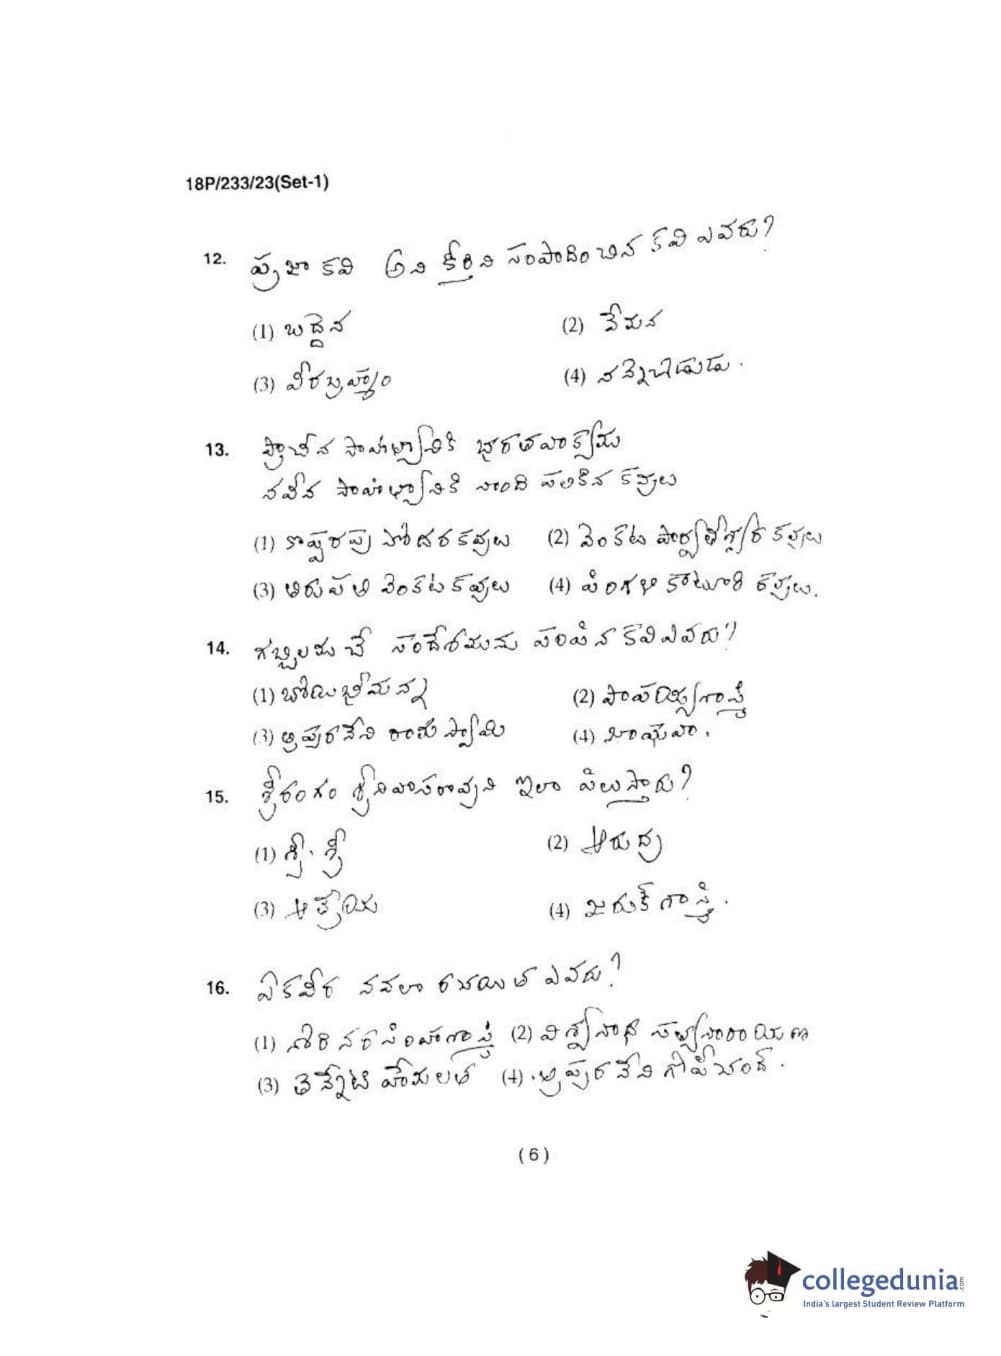 18P/233/23(Set-1)
12. ప్రజా కవి అని కీర్తిని సంపాదించిన కవి ఎవరు?
(1) బద్దెన (2) వేమన
(3) వీరబ్రహ్మం (4) నన్నెచోడుడు.
13. ప్రాచీన సాహిత్యానికి భరతవాక్యము
నవీన సాహిత్యానికి నాంది పలికిన కవులు
(1) కొప్పరపు సోదరకవులు (2) వెంకట పార్వతీశ్వర కవులు
(3) తిరుపతి వెంకటకవులు (4) పింగళి కాటూరి కవులు.
14. గబ్బిలముచే సందేశమును పంపిన కవి ఎవరు?
(1) బోయిభీమన్న (2) పాపయ్యశాస్త్రి
(3) త్రిపురనేని రామస్వామి (4) జాషువా.
15. శ్రీరంగం శ్రీనివాసరావుని ఇలా పిలుస్తారు?
(1) శ్రీ. శ్రీ (2) ఆరుద్ర
(3) ఆత్రేయ (4) జరుక్ శాస్త్రి.
16. ఏకవీర నవలా రచయిత ఎవరు?
(1) నరసింహశాస్త్రి (2) విశ్వనాథ సత్యనారాయణ
(3) తెన్నేటి హేమలత (4) . త్రిపురనేని గోపీచంద్.
( 6 )
collegedunia.com
India's largest Student Review Platform